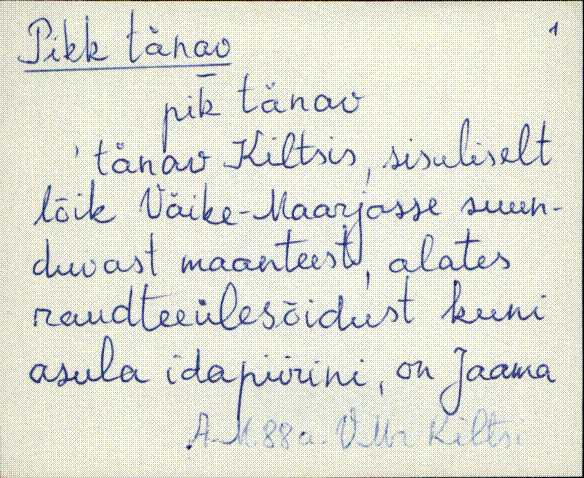 1
Pikk tänav
pik̄ tänav
' tänav Kiltsis, sisuliselt
lõik Väike-Maarjasse suun-
duvast maanteest, alates
raudteeülesõidust kuni
asula idapiirini, on Jaama
A-M 88a. VMr Kiltsi